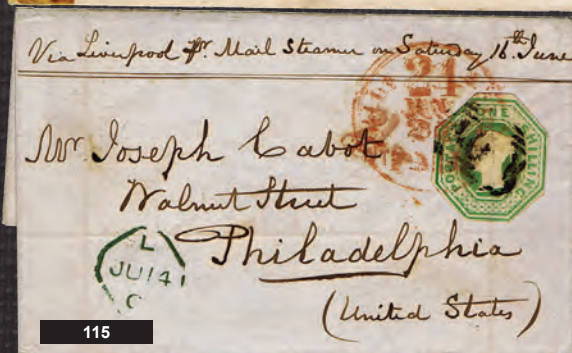 Via Liverpool pr. Mail Steamer on Saturday 16th June
21
ONE
SHILLING
POSTAGE
Mr Joseph Cabot
Walnut Street
Philadelphia
(United States)
L
JU 14
C
115